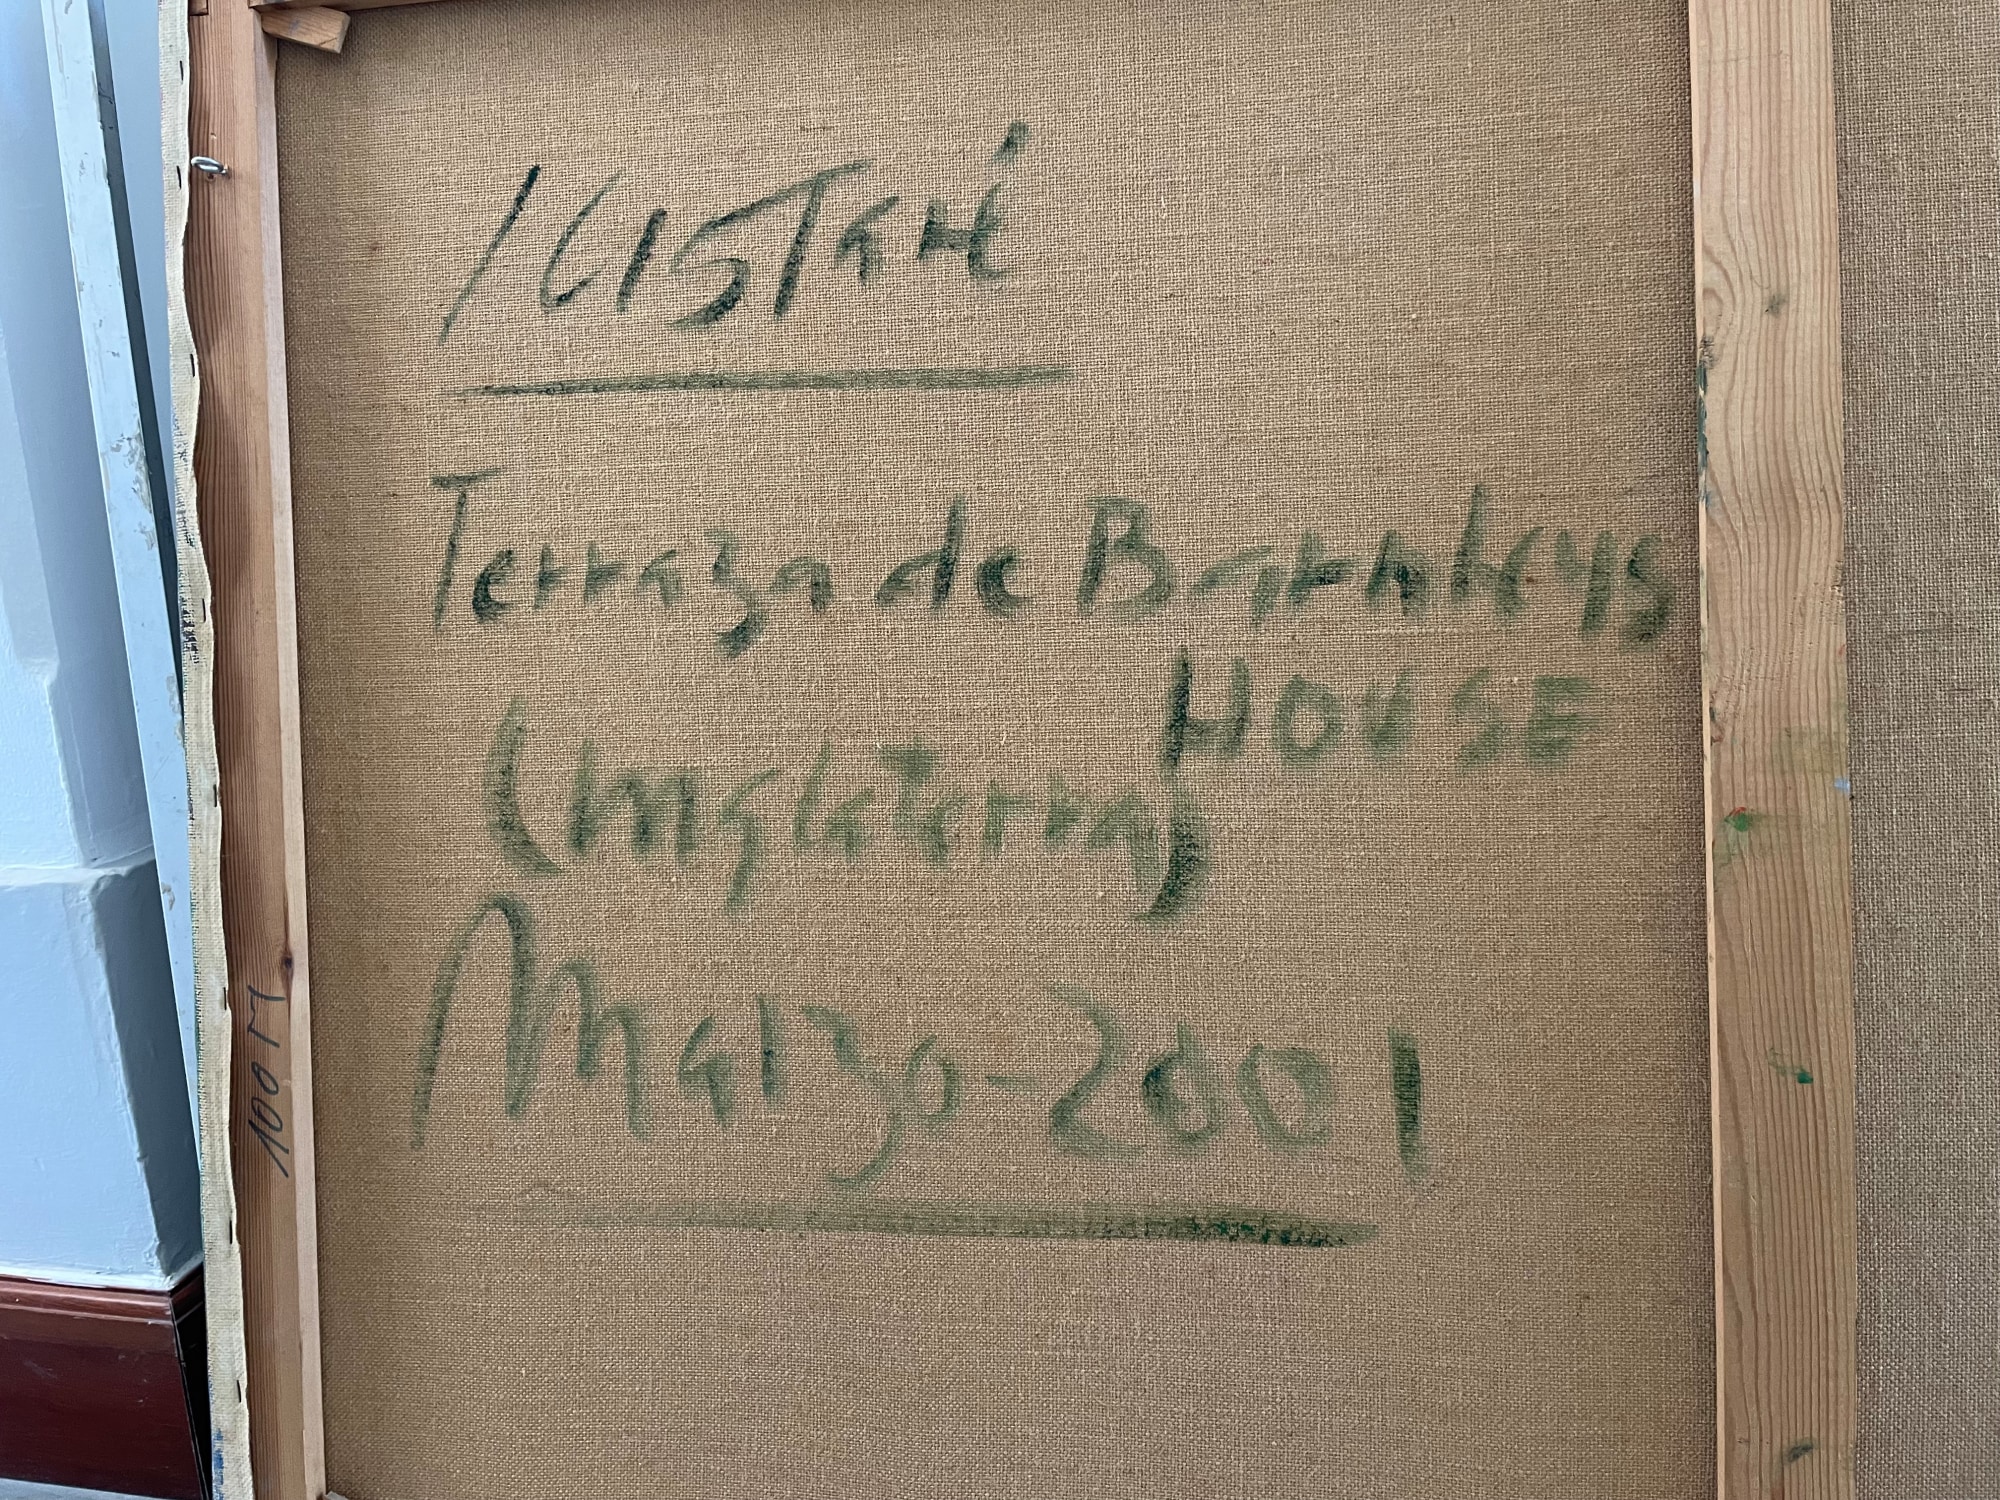 Terraza de Barnhleys
HOUSE
(Inglaterra)
Marzo-2001
100 M